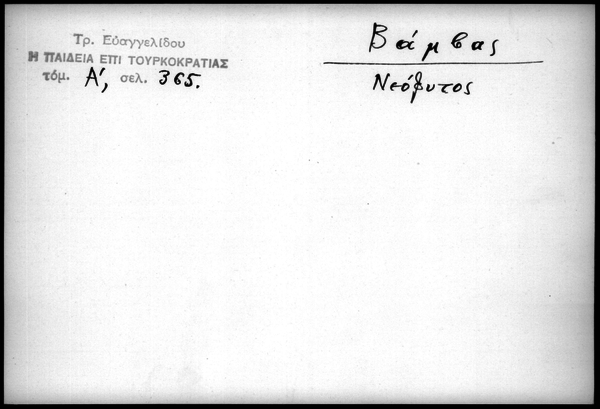 Τρ. Εὐαγγελίδου
Η ΠΑΙΔΕΙΑ ΕΠΙ ΤΟΥΡΚΟΚΡΑΤΙΑΣ
τόμ. Α', σελ. 365.
Βάμβας
Νεόφυτος